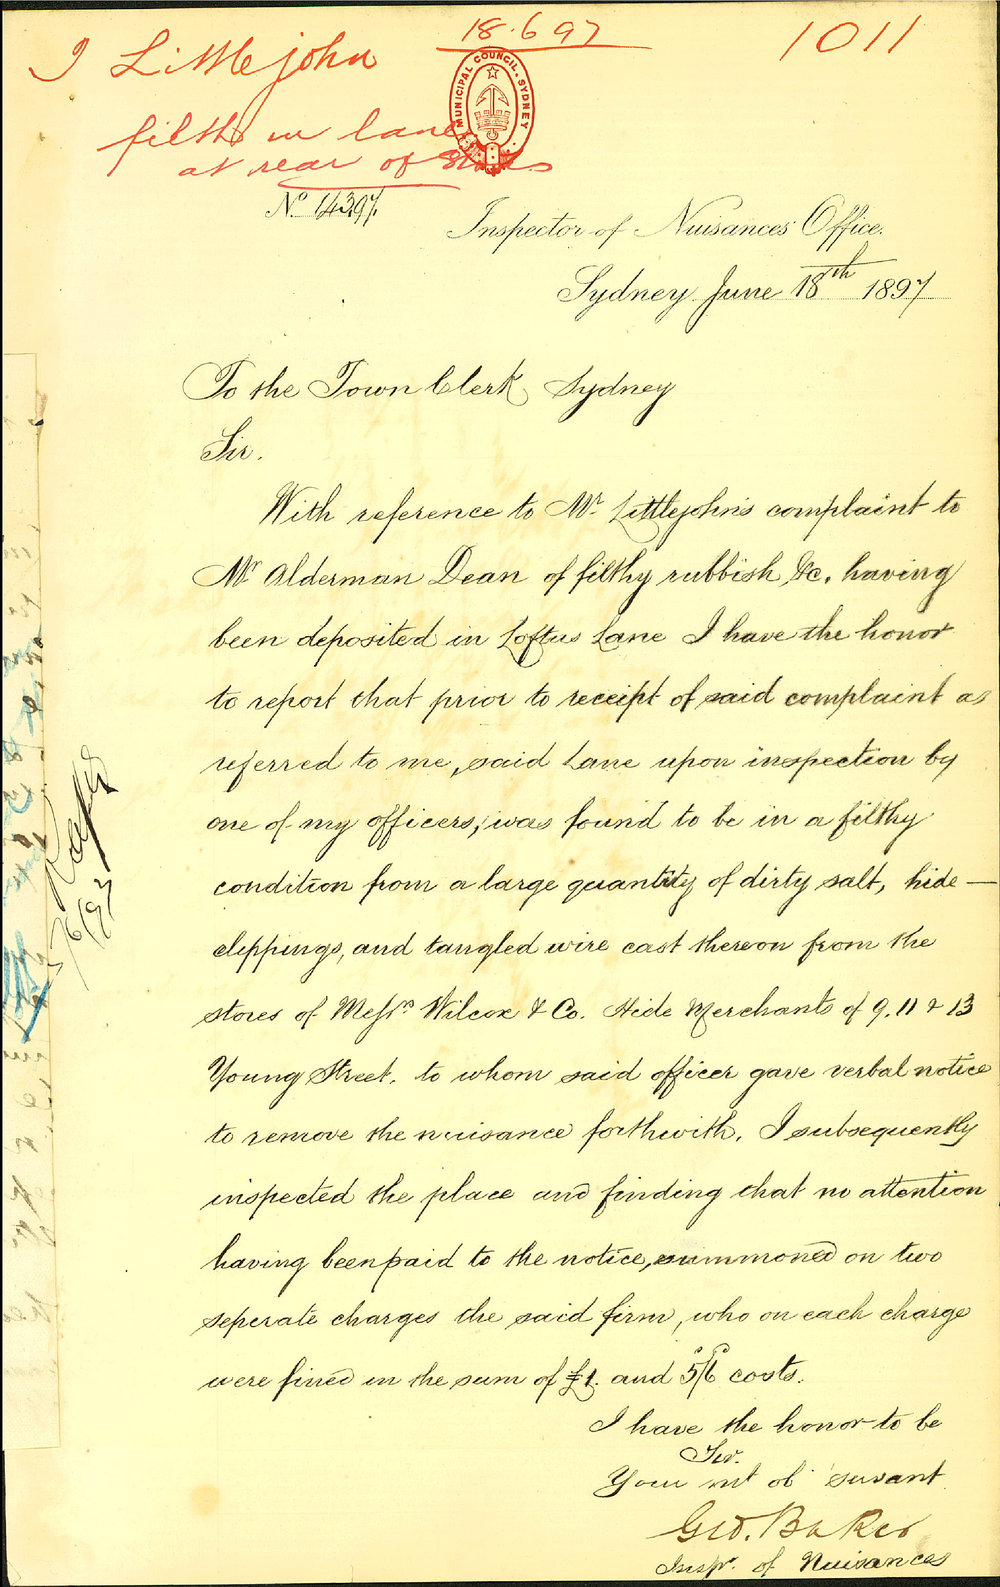 18.6.97
1011
J Littlejohn
MUNICIPAL COUNCIL. SYDNEY
filth in lane
at rear of Stores
No. 1439/97.
Inspector of Nuisances' Office.
Sydney June 18th 1897
To the Town Clerk, Sydney
Sir.
With reference to Mr. Littlejohn's complaint to
Mr Alderman Dean of filthy rubbish, &c. having
been deposited in Loftus Lane I have the honor
to report that prior to receipt of said complaint as
referred to me, said Lane upon inspection by
one of my officers, was found to be in a filthy
condition from a large quantity of dirty salt, hide—
clippings, and tangled wire cast thereon from the
stores of Messrs. Wilcox & Co. Hide Merchants of 9, 11 & 13
Young Street, to whom said officer gave verbal notice
to remove the nuisance forthwith. I subsequently
inspected the place and finding that no attention
having been paid to the notice, summoned on two
seperate charges the said firm, who on each charge
were fined in the sum of £1. and 5/6 costs.
I have the honor to be
Sir.
Your mt ob servant
Geo. Baker
Inspr. of Nuisances